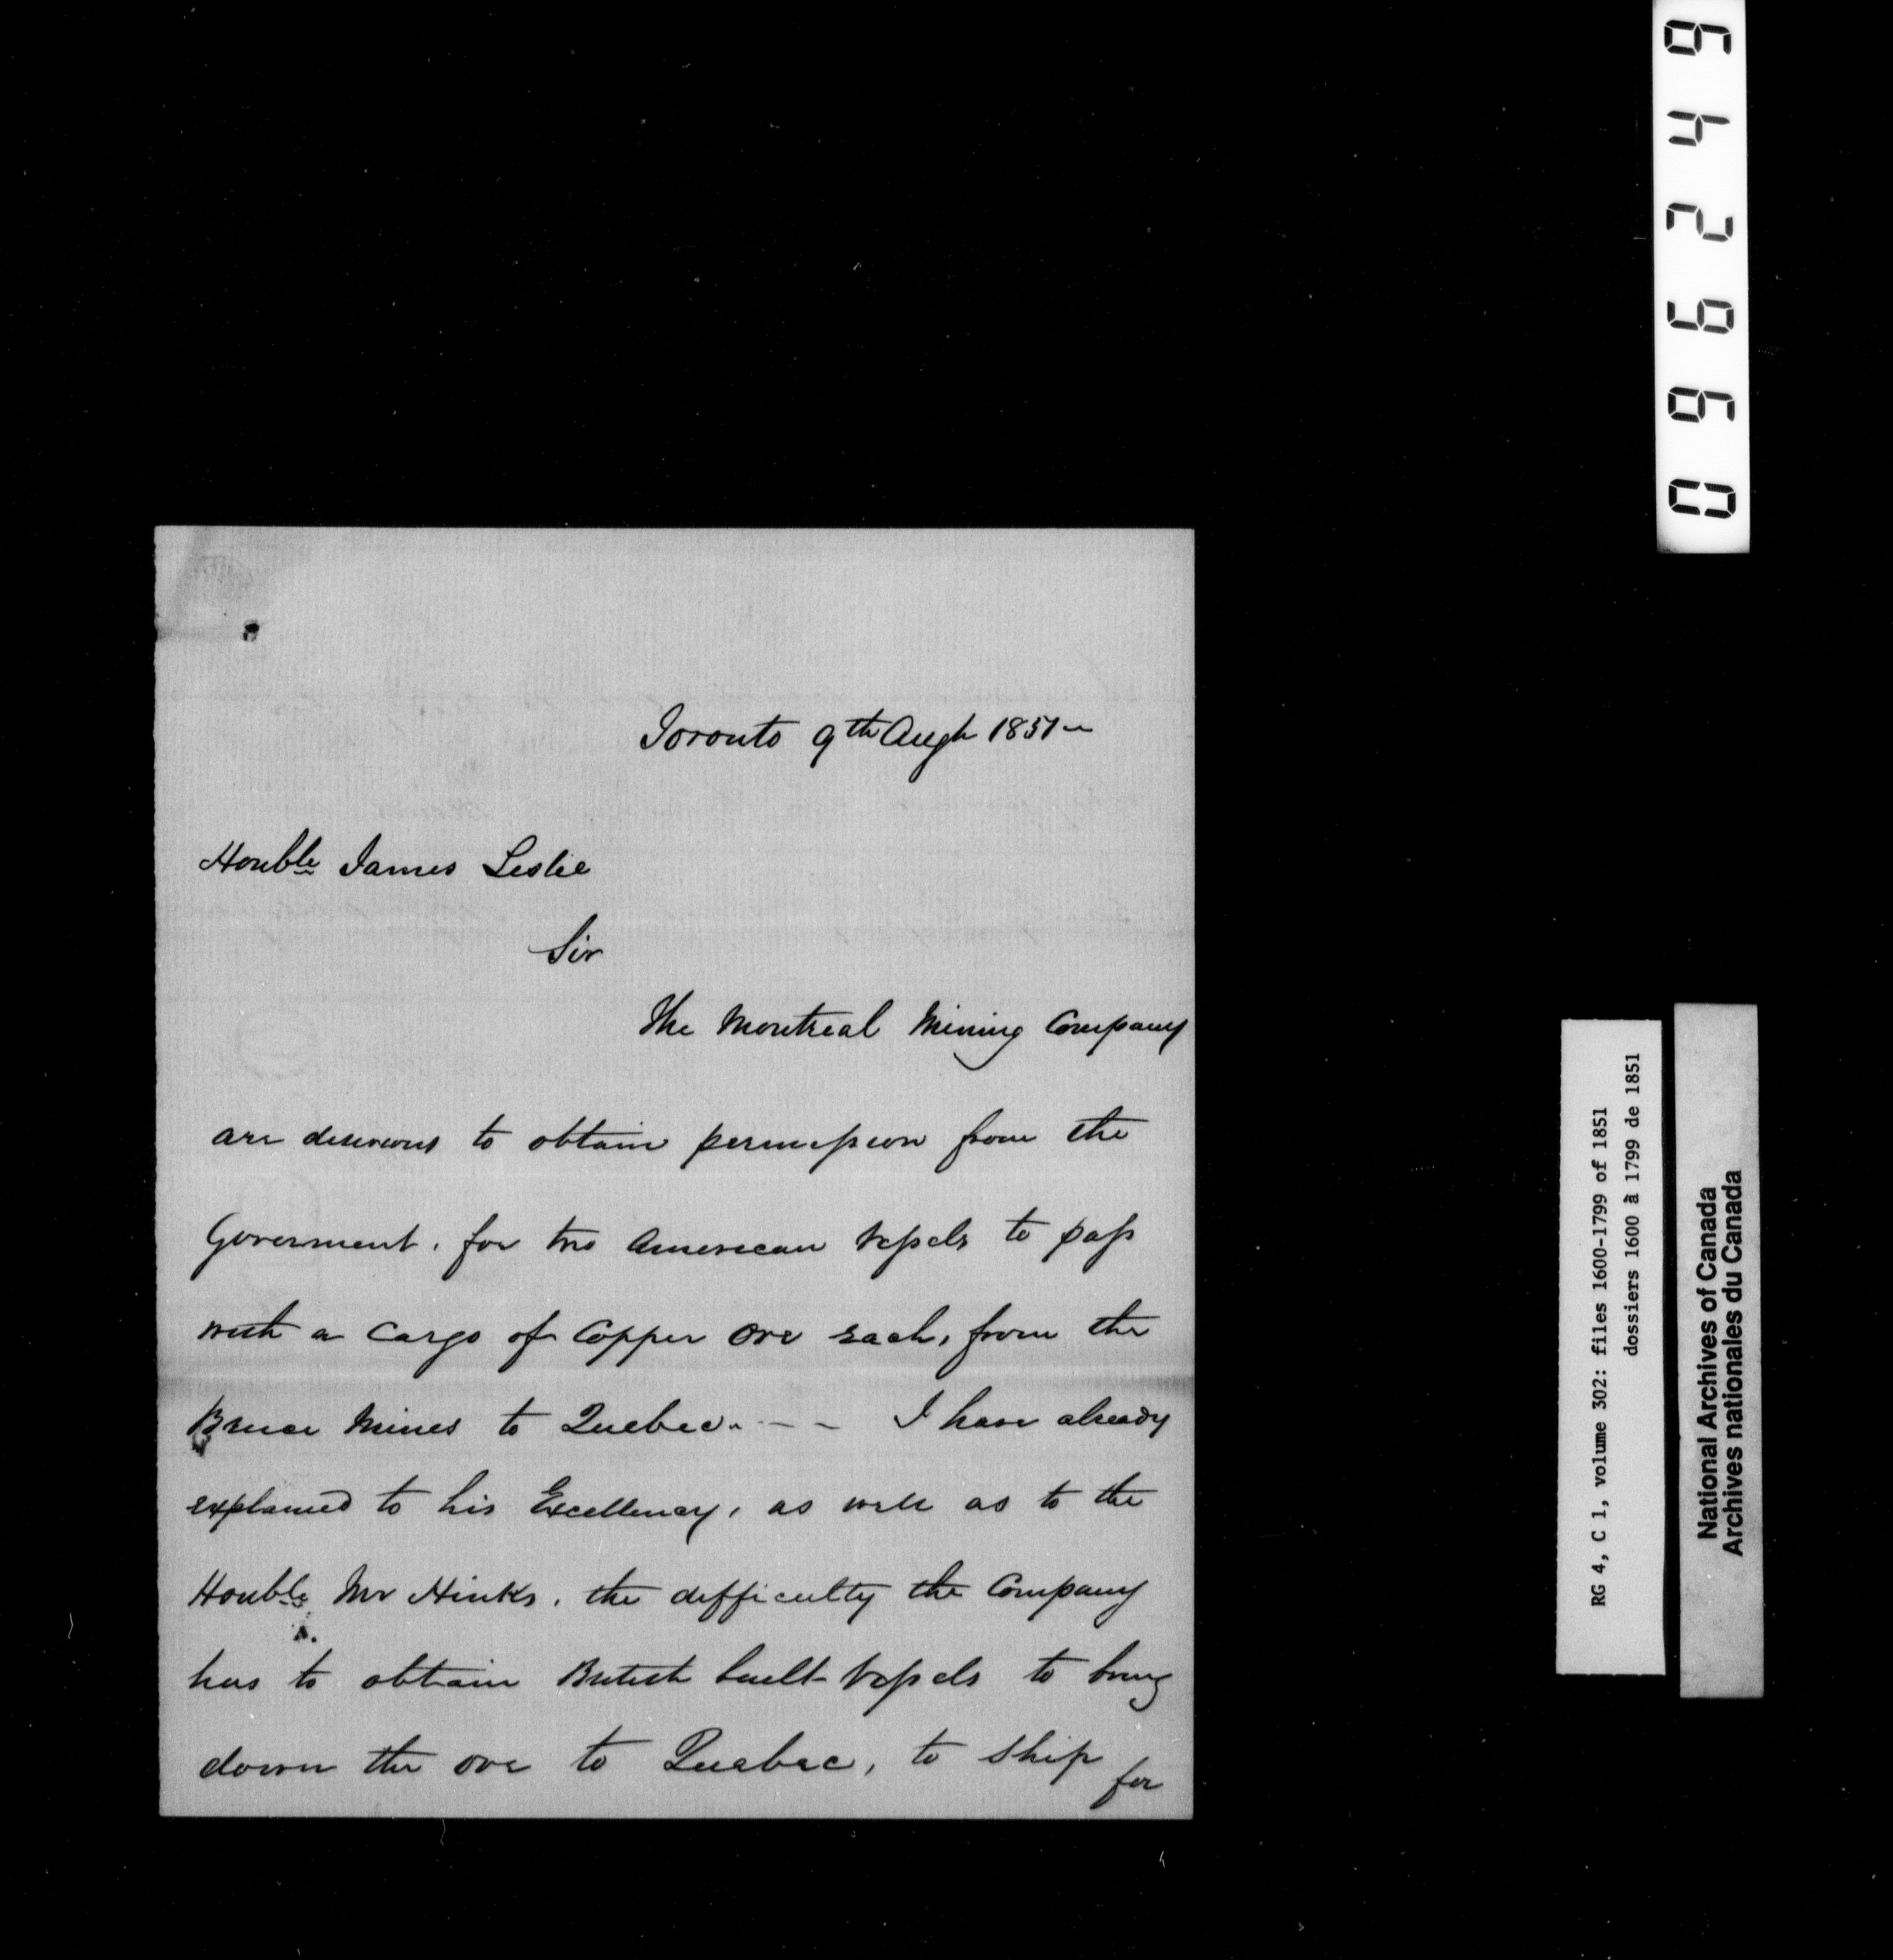 Toronto 9th Augt 1851
Honble James Leslie
Sir
The Montreal Mining Company
are desirous to obtain permission from the
Goverment, for two American Vessels to pass
with a Cargo of Copper Ore each, from the
Bruce Mines to Quebec. - - - I have already
explained to his Excellency, as well as to the
Honble Mr Hinks, the difficulty the Company
has to obtain British built Vessels to bring
down the ore to Quebec, to ship for
096249
RG 4, C 1, volume 302: files 1600-1799 of 1851
dossiers 1600 à 1799 de 1851
National Archives of Canada
Archives nationales du Canada